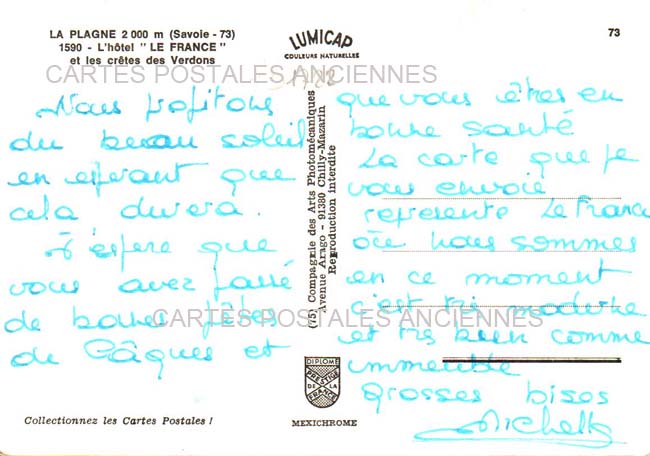 LA PLAGNE 2 000 m (Savoie - 73)
1590 - L'hôtel " LE FRANCE "
et les crêtes des Verdons
LUMICAP
COULEURS NATURELLES
73
CARTES POSTALES ANCIENNES
1982
Nous profitons
du beau soleil
en esperant que
cela durera.
J'espere que
vous avez passé
de bonnes fêtes
de Pâques et
que vous êtes en
bonne santé
La carte que je
vous envoie
represente Le France
où nous sommes
en ce moment
c'est très moderne
et très bien comme
immeuble
grosses bises
Michelle
(75) Compagnie des Arts Photomécaniques
Avenue Arago - 91380 Chilly-Mazarin
Reproduction interdite
CARTES POSTALES ANCIENNES
DIPLOME
PRESTIGE
DE LA
FRANCE
MEXICHROME
Collectionnez les Cartes Postales !